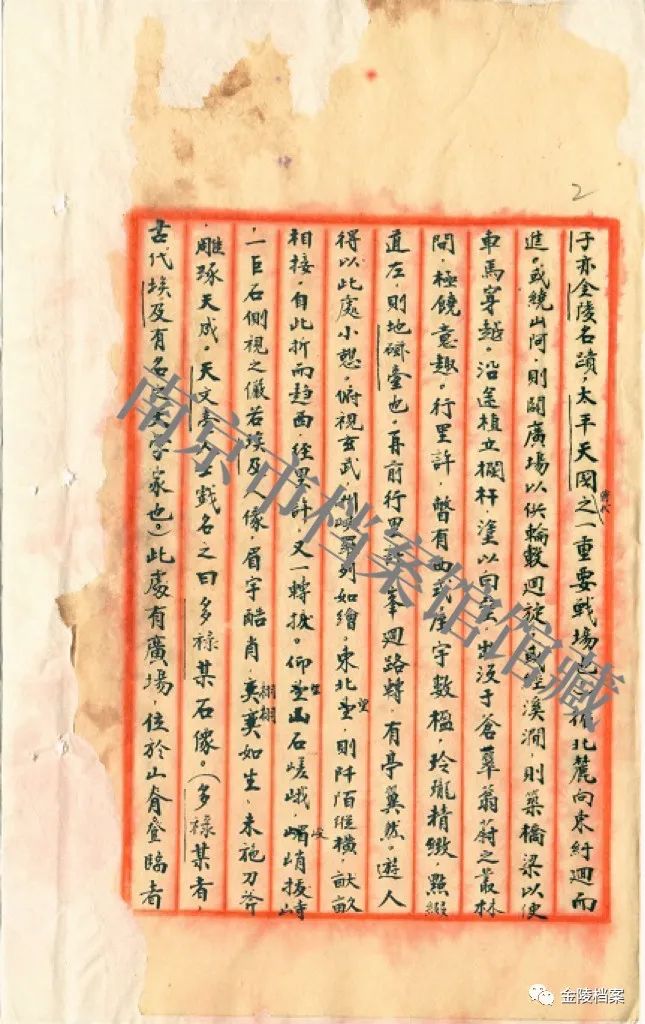 2
子亦金陵名蹟，太平天国之一重要戰場也。循北麓向東紆迴而
當代
進。或繞山阿，則闢廣場以供輪轂迴旋，或跨溪澗，則築橋梁以便
車馬穿越。沿途植立欄杆，塗以白堊，出没于蒼翠蓊蔚之叢林
間，極饒意趣。行里許，瞥有西式房宇数楹，玲瓏精緻，點綴
道左，則地磁臺也。再前行里許，峯迴路轉，有亭翼然。遊人
得以此處小憩。俯視玄武，洲嶼羅列如繪。東北望，則阡陌縱横，畎畝
相接，自此折而趋西，徑里許，又一轉捩。仰望山石嵯峨，峻峭拔峙
一巨石側視之儼若埃及人像，眉宇酷肖，栩栩如生，未施刀斧
雕琢天成。天文臺人士戲名之曰多禄某石像。（多禄某者，
古代埃及有名之天文家也。）此處有廣場，位於山脊登臨者
南京市档案馆馆藏
金陵档案